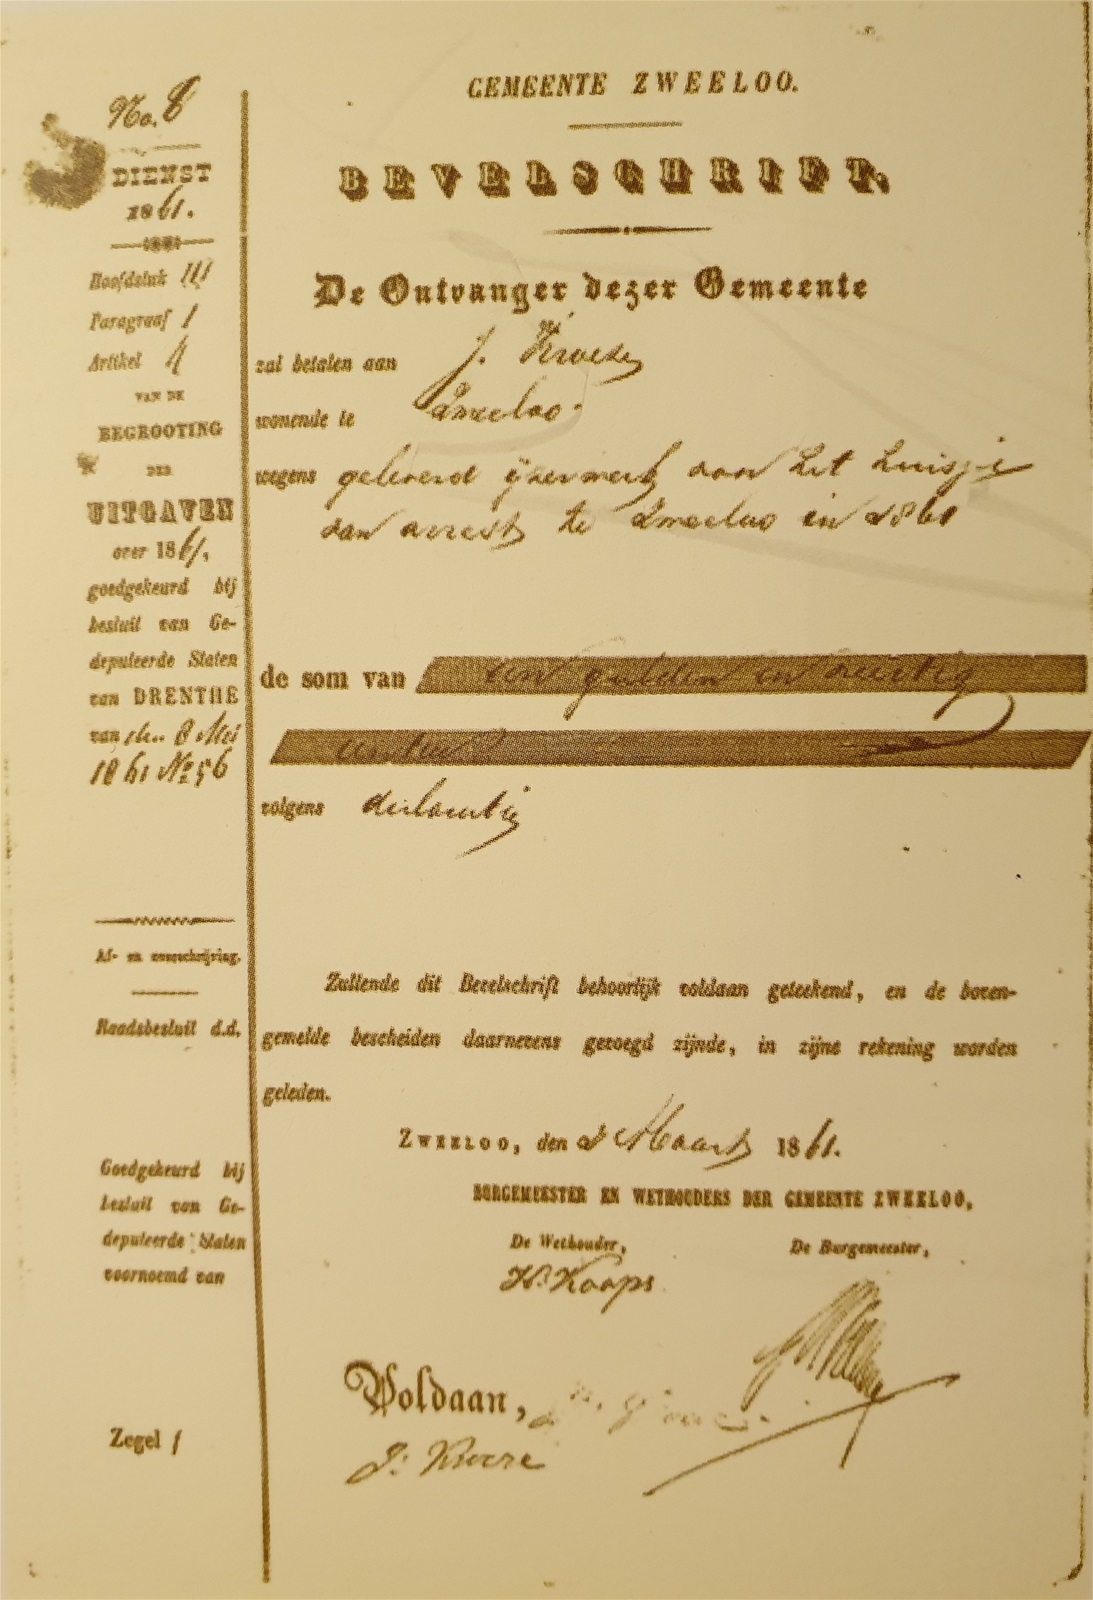 No. 8
DIENST
1861.
Hoofdstuk III
Paragraaf 1
Artikel 4
VAN DE
BEGROOTING
DER
UITGAVEN
over 1861,
goedgekeurd bij
besluit van Ge-
deputeerde Staten
van DRENTHE
van den 8 Mei
1861 No 56
Af- en overschrijving.
Raadsbesluit d.d.
Goedgekeurd bij
besluit van Ge-
deputeerde Staten
voornoemd van
Zegel f
GEMEENTE ZWEELOO.
BEVELSCHRIFT.
De Ontvanger dezer Gemeente
zal betalen aan J. Kroeze
wonende te Zweeloo
wegens geleverd ijzerwerk aan het huisje
van arrest te Zweeloo in 1861
de som van een gulden en
centen
volgens
Zullende dit Bevelschrift behoorlijk voldaan geteekend, en de boven-
gemelde bescheiden daarnevens gevoegd zijnde, in zijne rekening worden
geleden.
ZWEELOO, den 2 Maart 1861.
BURGEMEESTER EN WETHOUDERS DER GEMEENTE ZWEELOO,
De Wethouder, De Burgemeester,
Koops
Voldaan,
J. Kroeze